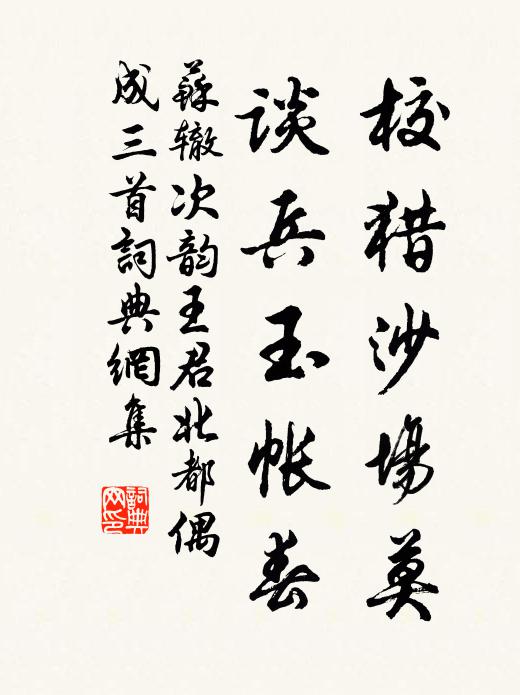 校猎沙場莫
谈兵玉帐春
蘇辙次韵王君北都偶
成三首詞典網集
詞典网印